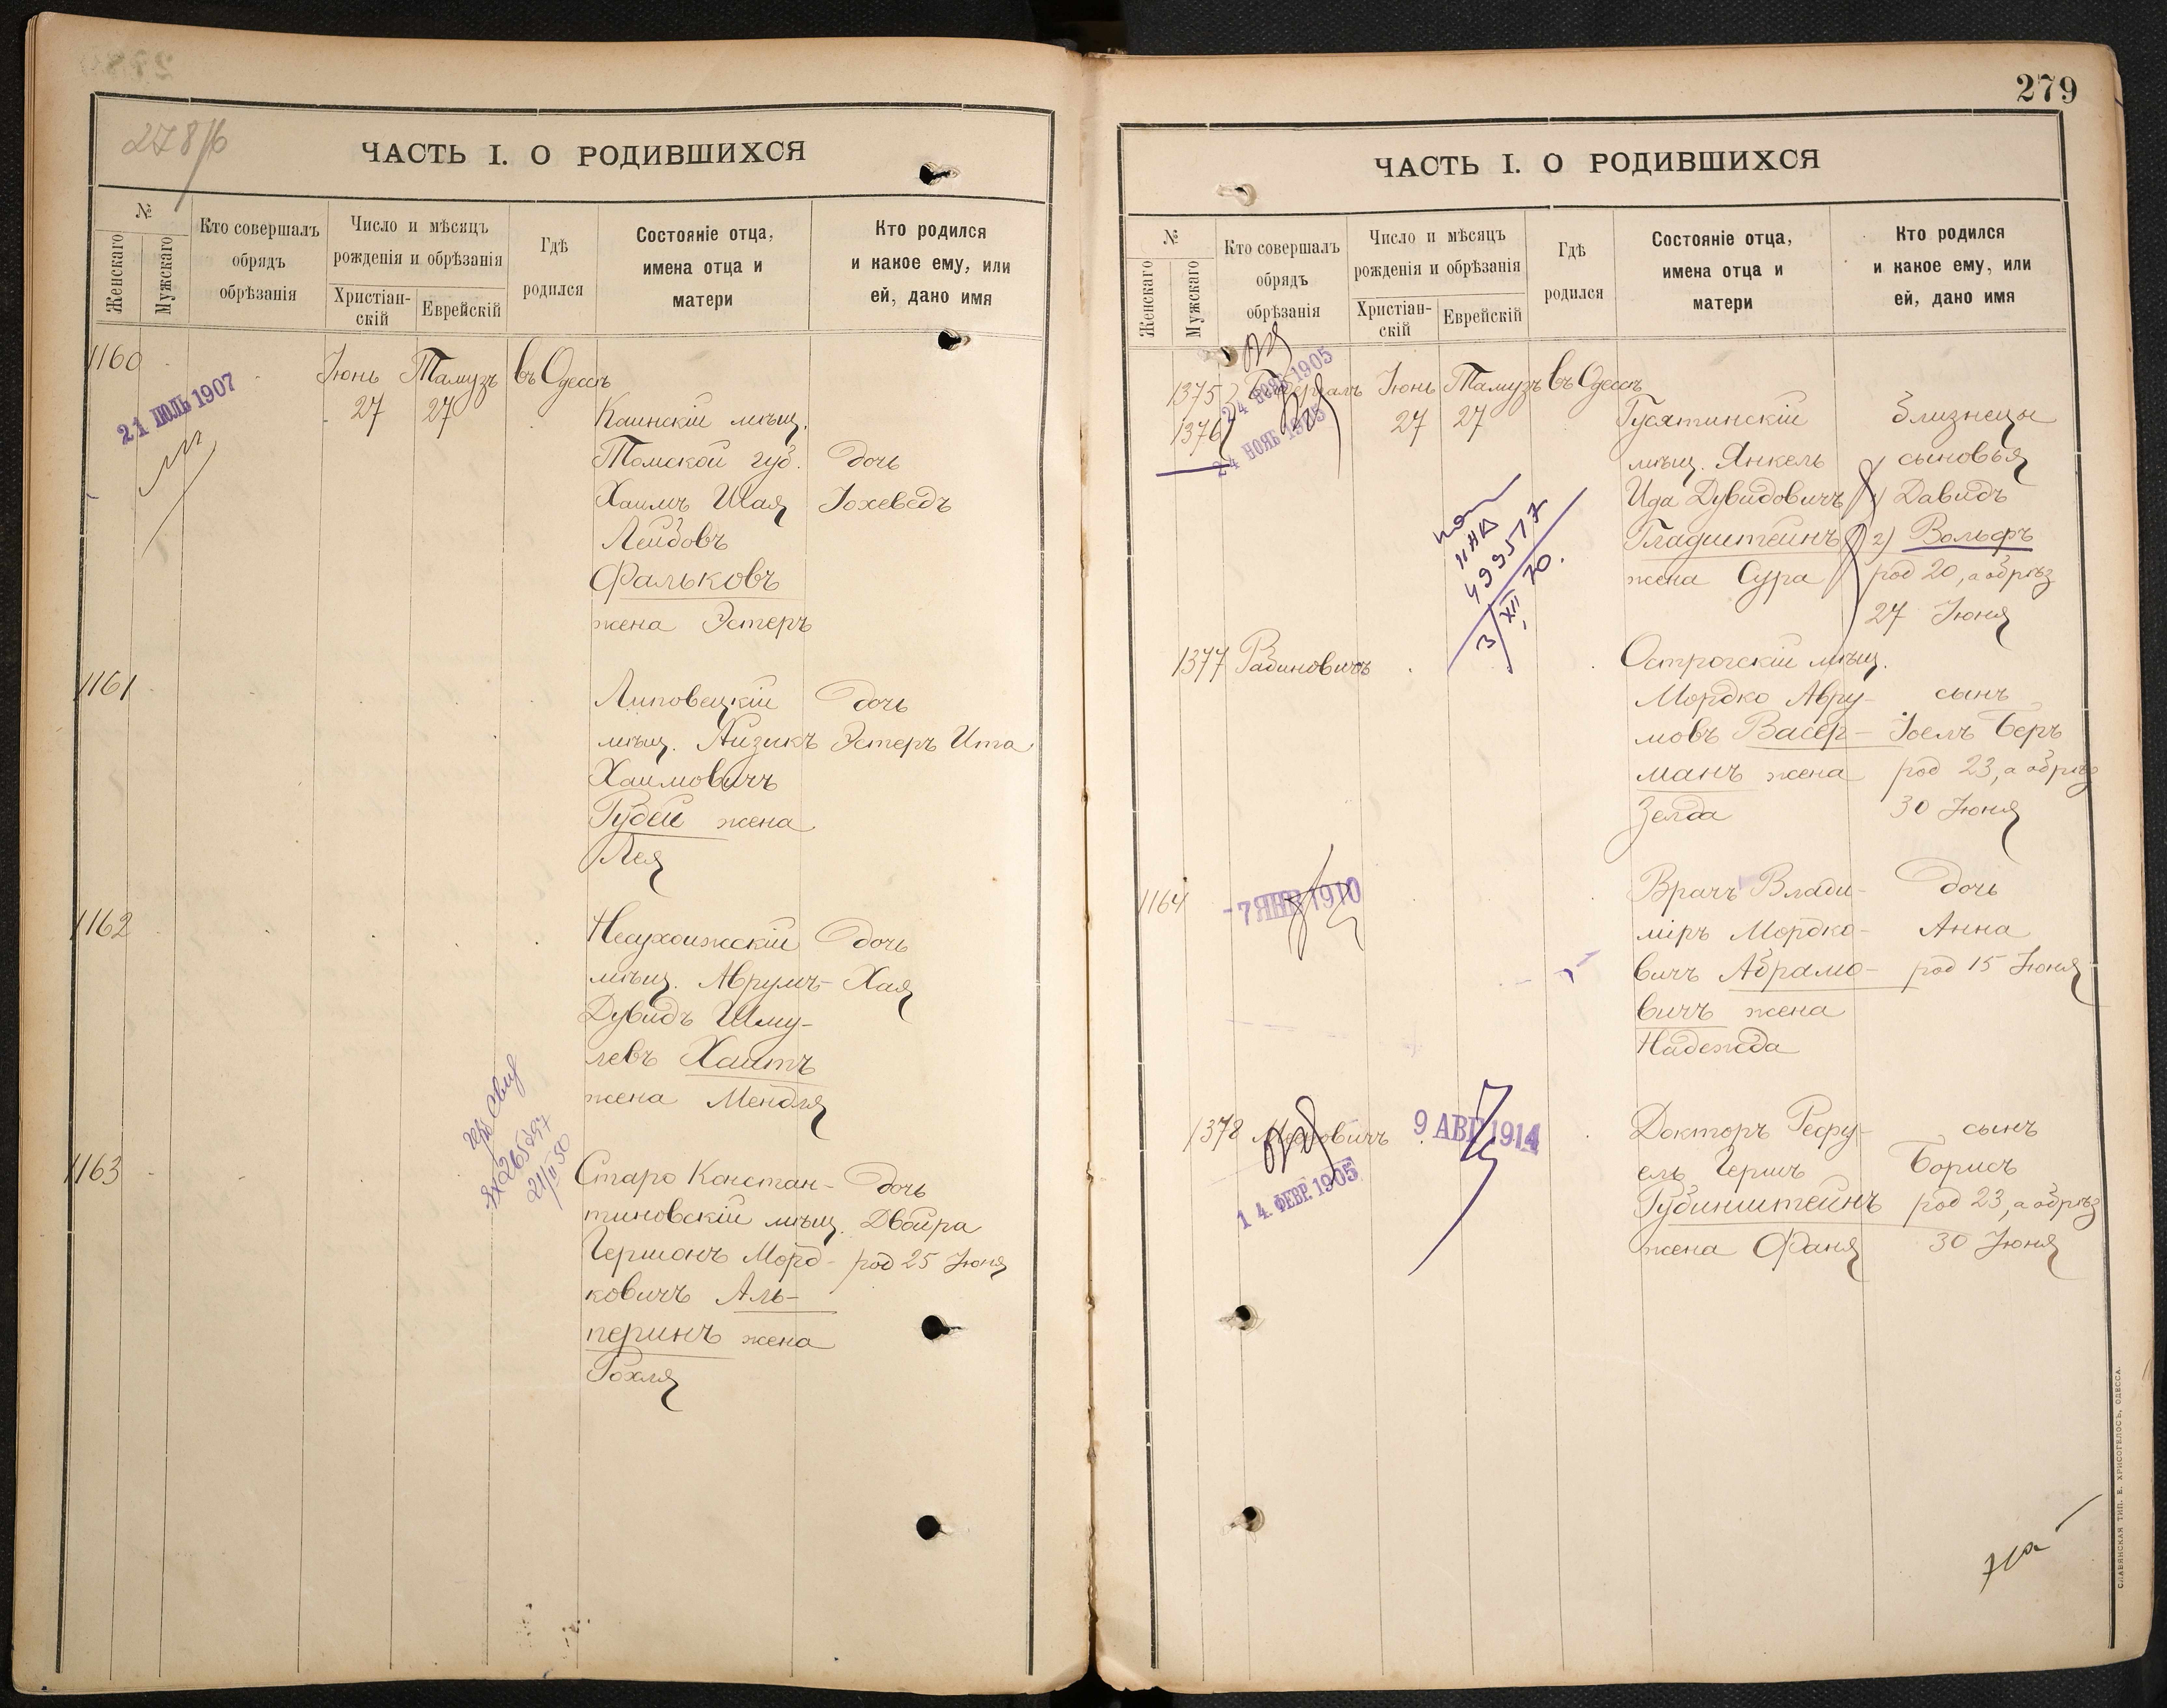 278/б
ЧАСТЬ I. О РОДИВШИХСЯ
№
Женскаго
Мужскаго
Кто совершалъ
обрядъ
обрѣзанія
Число и мѣсяцъ
рожденія и обрѣзанія
Христіан-
скій
Еврейскій
Гдѣ
родился
Состояніе отца,
имена отца и
матери
Кто родился
и какое ему, или
ей, дано имя
1160
21 ІЮЛЬ 1907
Іюнь Тамузъ въ Одессѣ
27 27
Каинскій мѣщ.
Томской губ. дочь
Хаимъ Шая Іохеведъ
Лейбовъ
Фальковъ
жена Эстеръ
1161
Липовецкій дочь
мѣщ. Айзикъ Эстеръ Ита
Хаимовичъ
Губей жена
Лея
1162
Несухоижскій дочь
мѣщ. Аврумъ- Хая
Дувидъ Шму-
левъ Хаитъ
жена Мендля
21/II 50
1163
Старо Констан- дочь
тиновскій мѣщ. Двойра
Гершонъ Морд- род 25 Іюня
ковичъ Аль-
перинъ жена
Рохля
279
ЧАСТЬ I. О РОДИВШИХСЯ
№
Женскаго
Мужскаго
Кто совершалъ
обрядъ
обрѣзанія
Число и мѣсяцъ
рожденія и обрѣзанія
Христіан-
скій
Еврейскій
Гдѣ
родился
Состояніе отца,
имена отца и
матери
Кто родился
и какое ему, или
ей, дано имя
1375 Іюнь Тамузъ въ Одессѣ
1376 27 27
24 НОЯБ 1905
24 НОЯБ 1905
Гусятинскій близнецы
мѣщ. Янкель сыновья
Ида Дувидовичъ 1) Давидъ
Гладштейнъ 2) Вольфъ
жена Сура род 20, а обрѣз
27 Іюня
499517
3/XII 70.
1377 Рабиновичъ
Острогскій мѣщ.
Мордко Авру- сынъ
мовъ Васер- Іоелъ Беръ
манъ жена род 23, а обрѣз
Зелда 30 Іюня
1164
-7 ЯНВ 1910
Врачъ Влади- дочь
міръ Мордко- Анна
вичъ Абрамо- род 15 Іюня
вичъ жена
Надежда
1378
9 АВГ 1914
14 ФЕВР. 1905
Докторъ Рефу- сынъ
елъ Гершъ Борисъ
Рубинштейнъ род 23, а обрѣз
жена Фаня 30 Іюня
СЛАВЯНСКАЯ ТИП. Е. ХРИСОГЕЛОСЪ, ОДЕССА.